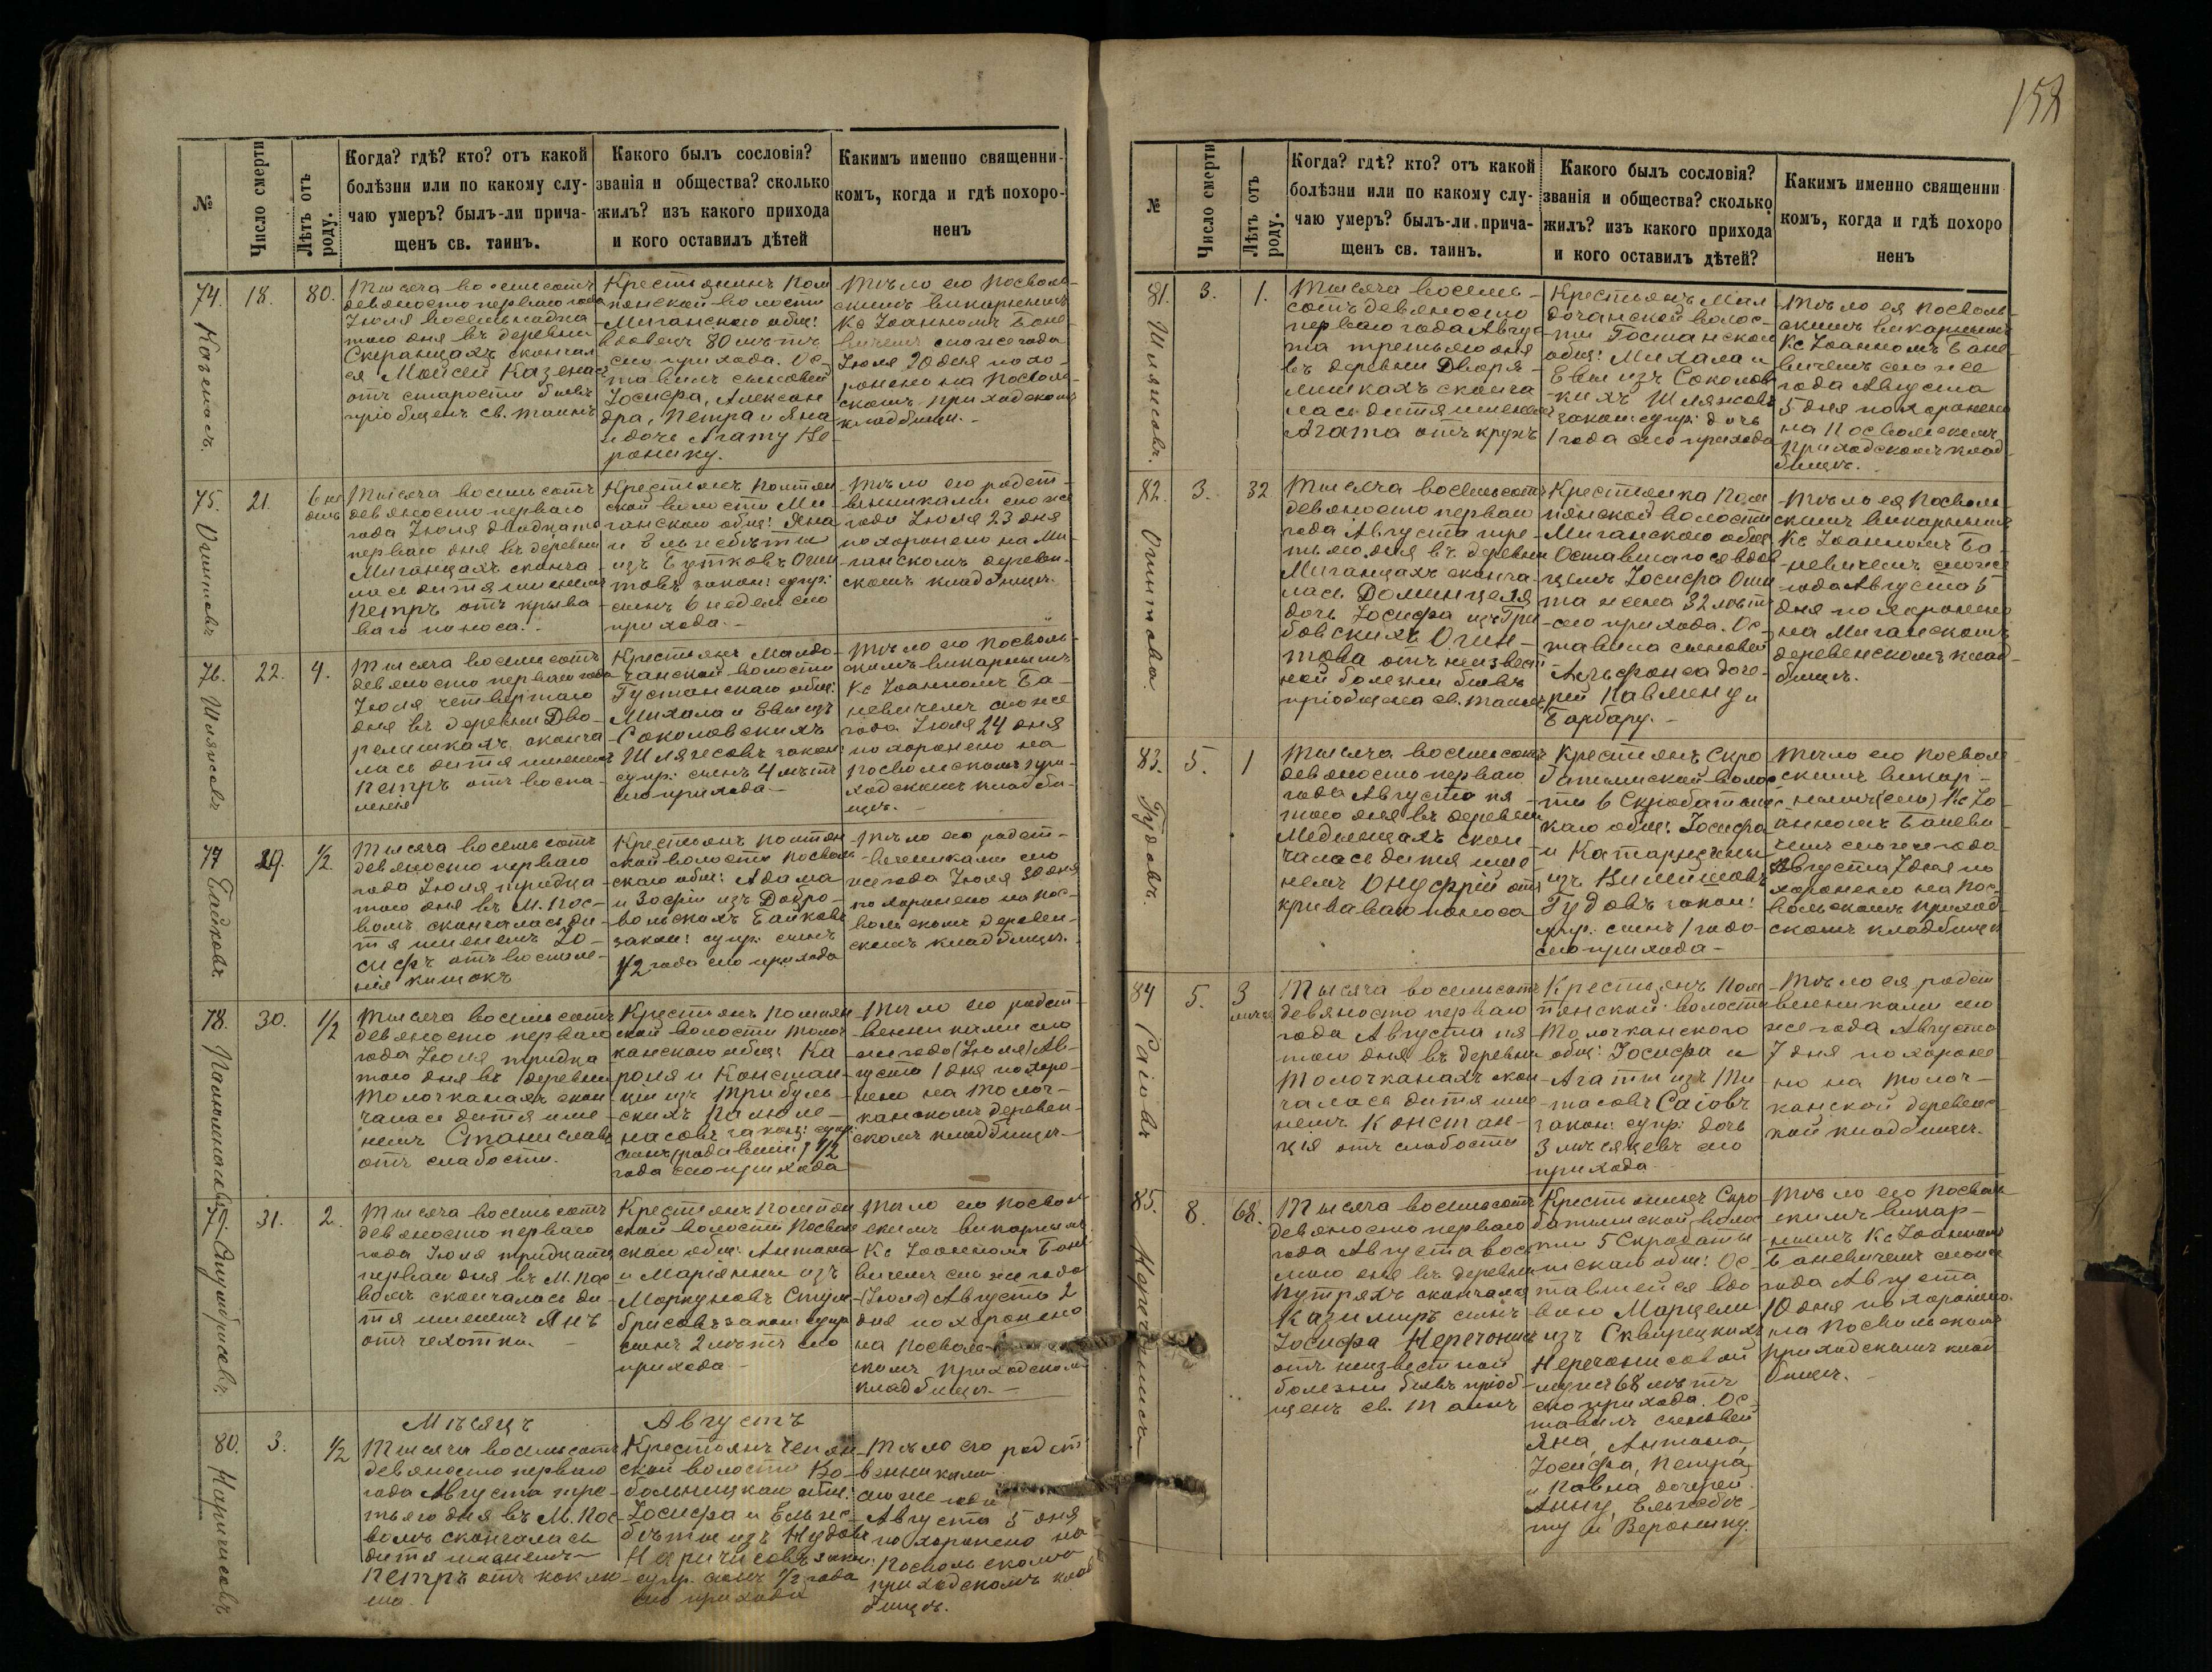 №
Число смерти
Лѣтъ отъ роду.
Когда? гдѣ? кто? отъ какой
болѣзни или по какому слу-
чаю умеръ? былъ-ли прича-
щенъ св. таинъ.
Какого былъ сословія?
званія и общества? сколько
жилъ? изъ какого прихода
и кого оставилъ дѣтей
Какимъ именно священни-
комъ, когда и гдѣ похоро-
ненъ
74.
18.
80.
Тысяча восемьсотъ
девяносто перваго года
Іюля восемьнадца
таго дня въ деревни
скончал
ся Моисей
отъ старости бывъ
пріобщенъ св. таинъ
Крестянинъ Пом
пянской волости
Миганскаго общ:
вдовецъ 80 лѣтъ
сего прихода. Ос-
тавилъ сыновей
Іосифа, Алексан
дра, Петра и Яна
и дочь Агату Ве
ронику.
Тѣло его Посволь-
скимъ викарнымъ
Кс Іоанномъ Бане-
вичемъ сего же года
Іюля 20 дня похо-
ронено на Посволь-
скомъ приходскомъ
кладбищѣ.-
75.
21.
6 не
дель
Тысяча восемьсотъ
девяносто перваго
года Іюля двадцать
перваго дня въ деревни
Миганцахъ сконча-
лась дитя именемъ
Петръ отъ крыва-
ваго поноса.-
Крестянъ Помпян
ской волости Ми-
ганскаго общ: Яна
и Ельжбѣты
изъ Бутковъ
закон: супр:
сынъ 6 недел сего
прихода.-
Тѣло его родст-
венниками сего же
года Іюля 23 дня
похоронено на Ми-
ганскомъ деревен-
скомъ кладбищѣ.
76.
Шляжасъ
22.
4.
Тысяча восемьсотъ
девяносто перваго года
Іюля четвертаго
дня въ деревни Дво-
релишкахъ сконча-
лась дитя именемъ
Петръ отъ воспа-
ленія
Крестянъ
волости
общ:
Михала и Евы изъ
Соколовскихъ
закон:
супр: сынъ 4 лѣтъ
сего прихода-
Тѣло его Посволь-
скимъ викарнымъ
Кс Іоанномъ Ба-
невичемъ сего же
года Іюля 24 дня
похоронено на
Посвольскомъ при-
ходскомъ кладби-
щѣ.-
77
Байковъ
29.
1/2.
Тысяча восемьсотъ
девяносто перваго
года Іюля тридца-
таго дня въ М. Пос-
волѣ скончалась ди-
тя именемъ Іо-
сифъ отъ воспале-
нія кишокъ
Крестянъ Помпян
ской волости Посволь
скаго общ: Адама
и Зофіи изъ Добро-
вольскихъ Байковъ
закон: супр: сынъ
1/2 года сего прихода
Тѣло его родст-
венниками сего
же года Іюля 30 дня
похоронено на Пос-
вольскомъ деревен-
скомъ кладбищѣ.
78.
30.
1/2
Тысяча восемьсотъ
девяносто перваго
года Іюля тридца
таго дня въ деревни
Толочканахъ скон
чалась дитя име-
немъ Станиславъ
отъ слабости.
Крестянъ Помпян
ской волости Толоч
канскаго общ: Ка
роля и Констан-
ціи изъ
закон: супр:
сынъ 1/2
года сего прихода
Тѣло его родст-
венниками сего
же года (Іюля) Ав-
густа 1 дня похоро-
нено на Толоч-
канскомъ деревен-
скомъ кладбищѣ-
79.
31.
2.
Тысяча восемьсотъ
девяносто перваго
года Іюля тридцать
перваго дня въ М. Пос
волѣ скончалась ди-
тя именемъ Янъ
отъ чехотки.-
Крестянъ Помпян
ской волости Посволь
скаго общ: Антона
и Маріянны изъ
Моркуновъ Стум-
брисовъ закон: супр
сынъ 2 лѣтъ сего
прихода-
Тѣло его Посволь-
скимъ викарнымъ
Кс Іоанномъ Бане-
вичемъ сего же года
(Іюля) Августа 2
дня похоронено
на Посволь-
скомъ приходском
кладбищѣ.-
Мѣсяцъ Августъ
80.
3.
1/2
Тысяча восемьсотъ
девяносто перваго
года Августа тре-
тьяго дня въ М. Пос-
волѣ скончалась
дитя именемъ
Петръ отъ коклю-
ша.
Крестянъ
ской волости
общ:
Іосифа и Ельж-
бѣты изъ
закон:
супр. сынъ 1/2 года
сего прихода
Тѣло его родст-
венниками
сего же года
Августа 5 дня
похоронено на
Посвольскомъ
приходскомъ клад
бищѣ.
158
№
Число смерти
Лѣтъ отъ роду.
Когда? гдѣ? кто? отъ какой
болѣзни или по какому слу-
чаю умеръ? былъ-ли прича-
щенъ св. таинъ.
Какого былъ сословія?
званія и общества? сколько
жилъ? изъ какого прихода
и кого оставилъ дѣтей?
Какимъ именно священни
комъ, когда и гдѣ похоро
ненъ
81.
3.
1.
Тысяча восемь-
сотъ девяносто
перваго года Авгус-
та третьяго дня
въ деревни Дворя-
лишкахъ сконча-
лась дитя именемъ
Агата отъ крупъ
Крестьянъ
волос-
ти
общ: Михала и
Евы изъ Соколовс-
кихъ
закон: супр: дочь
1 года сего прихода
Тѣло ея Посволь-
скимъ викарнымъ
Кс Іоанномъ Бане-
вичемъ сего же
года Августа
5 дня похоронено
на Посвольскомъ
приходскомъ клад-
бищѣ.
82.
3.
32
Тысяча восемьсотъ
девяносто перваго
года Августа тре-
тьяго дня въ деревни
Миганцахъ сконча-
лась Доминцеля
дочь Іосифа изъ Гри
бовскихъ
отъ неизвест-
ной болезни бывъ
пріобщена св. таинъ
Крестянка Пом
пянской волости
Миганскаго общ.
Оставшагося вдов
цемъ Іосифа
жена 32 лѣтъ
сего прихода. Ос-
тавила сыновей
Альфонса доче-
рей Павлину и
Барбару.-
Тѣло ея Посволь-
скимъ викарнымъ
Кс Іоанномъ Ба-
невичемъ сего же
года Августа 5
дня похоронено
на Миганскомъ
деревенскомъ клад-
бищѣ.
83.
Гудовъ.
5.
1
Тысяча восемьсотъ
девяносто перваго
года Августа пя-
таго дня въ деревни
скон-
чалась дитя име
немъ Онуфрій отъ
криваваго поноса
Крестянъ Скро
волос-
ти 6
общ: Іосифа
и Катаржины
изъ
Гудовъ закон:
супр: сынъ 1 года
сего прихода-
Тѣло его Посволь
скимъ викар-
нымъ (сего) Кс Іо-
анномъ Баневи-
чемъ сего же года
Августа 7 дня по
хоронено на Пос-
вольскомъ приход-
скомъ кладбищѣ
84
Саіовъ
5.
3
Тысяча восемьсотъ
девяносто перваго
года Августа пя
таго дня въ деревни
Толочканахъ скон
чалась дитя име
немъ Констан-
ція отъ слабости
Крестянъ Пом
пянской волости
Толочканского
общ: Іосифа и
Агаты изъ
Саіовъ
закон: супр: дочь
3 мѣсяцевъ сего
прихода
Тѣло ея родст
венниками сего
же года Августа
7 дня похороне-
но на Толоч-
канской деревенс-
кой кладбищѣ.
85.
8.
68.
Тысяча восемьсотъ
девяносто перваго
года Августа вось
маго дня въ деревни
скончался
Казимиръ сынъ
Іосифа
отъ неизвестной
болезни бывъ пріоб-
щенъ св. Таинъ
Крестянинъ Скро
волос
ти 5
общ: Ос-
тавшейся вдо-
вою Марцели
изъ
мужъ 68 лѣтъ
сего прихода. Ос-
тавилъ сыновей
Яна, Антона,
Іосифа, Петра,
и Павла, дочерей
Анну, Ельжбѣ-
ту и Веронику.
Тѣло его Посволь-
скимъ викар-
нымъ Кс Іоанномъ
Баневичемъ сего же
года Августа
10 дня похоронено
на Посвольскомъ
приходскомъ клад
бищѣ.-